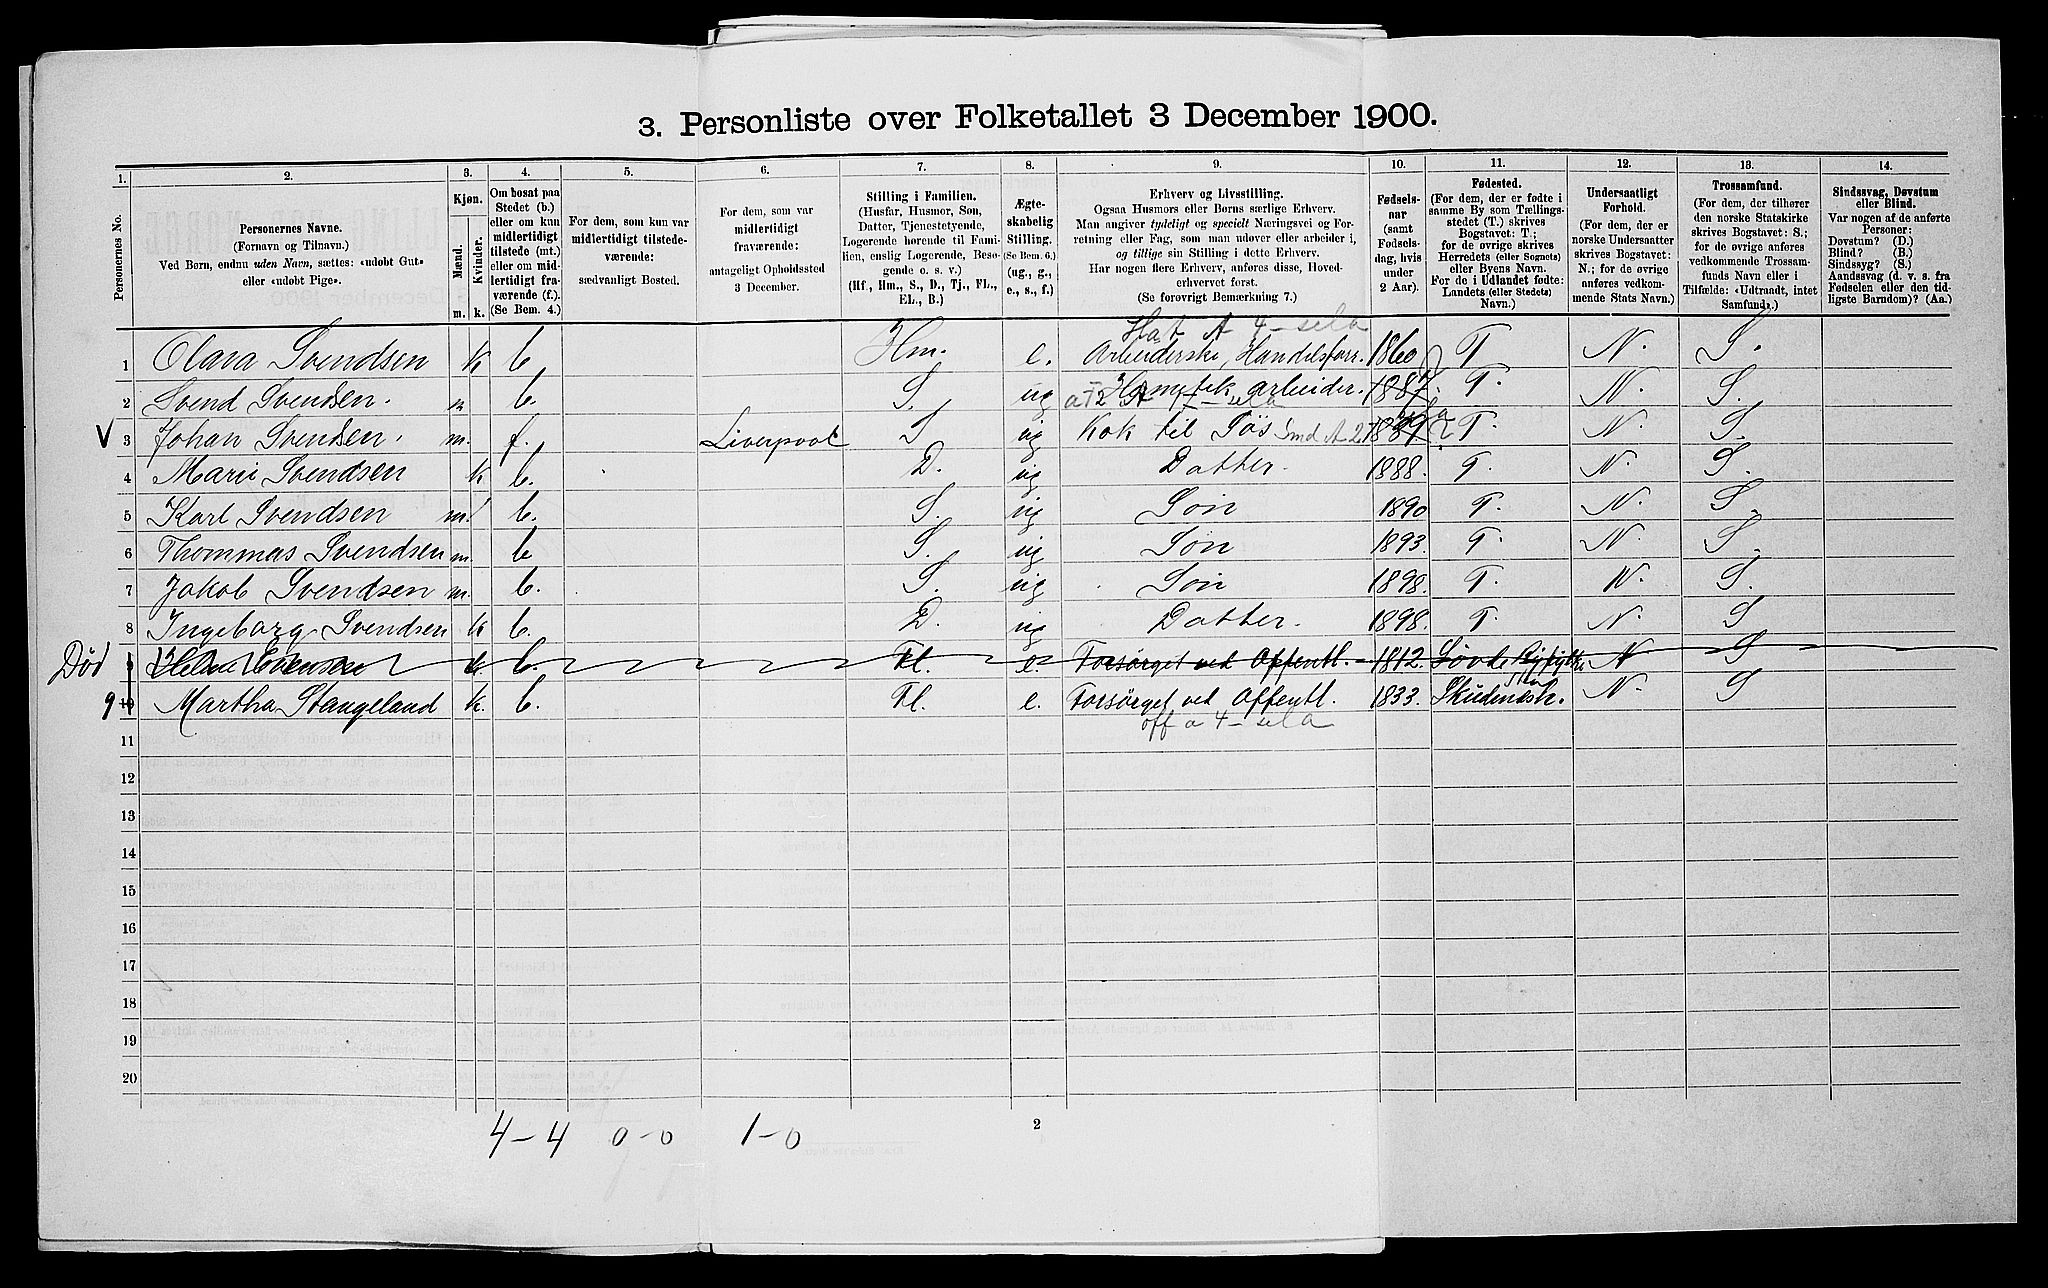 3. Personliste over Folketallet 3 December 1900.
1. 2. 3. 4. 5. 6. 7. 8. 9. 10. 11. 12. 13. 14.
Personernes No.
Personernes Navne.
(Fornavn og Tilnavn.)
Ved Børn, endnu uden Navn, sættes: «udøbt Gut»
eller «udøbt Pige».
Kjøn.
Mænd. Kvinder.
m. k.
Om bosat paa
Stedet (b.)
eller om kun
midlertidigt
tilstede (mt.)
eller om mid-
lertidigt fra-
værende (f.).
(Se Bem. 4.)
For dem, som kun var
midlertidigt tilstede-
værende:
sædvanligt Bosted.
For dem, som var
midlertidigt
fraværende:
antageligt Opholdssted
3 December.
Stilling i Familien.
(Husfar, Husmor, Søn,
Datter, Tjenestetyende,
Logerende hørende til Fami-
lien, enslig Logerende, Besø-
gende o. s. v.)
(Hf., Hm., S., D., Tj., FL.,
EL., B.)
Ægte-
skabelig
Stilling.
(Se Bem. 6.)
(ug., g.,
e., s., f.)
Erhverv og Livsstilling.
Ogsaa Husmors eller Børns særlige Erhverv.
Man angiver tydeligt og specielt Næringsvei og For-
retning eller Fag, som man udøver eller arbeider i,
og tillige sin Stilling i dette Erhverv.
Har nogen flere Erhverv, anføres disse, Hoved-
erhvervet først.
(Se forøvrigt Bemærkning 7.)
Fødsels-
aar
(samt
Fødsels-
dag, hvis
under
2 Aar).
Fødested.
(For dem, der er fødte i
samme By som Tællings-
stedet (T.) skrives
Bogstavet: T.;
for de øvrige skrives
Herredets (eller Sognets)
eller Byens Navn.
For de i Udlandet fødte:
Landets (eller Stedets)
Navn.)
Undersaatligt
Forhold.
(For dem, der er
norske Undersaatter
skrives Bogstavet:
N.; for de øvrige
anføres vedkom-
mende Stats Navn.)
Trossamfund.
(For dem, der tilhører
den norske Statskirke
skrives Bogstavet: S.;
for de øvrige anføres
vedkommende Trossam-
funds Navn eller i
Tilfælde: «Udtraadt, intet
Samfund».)
Sindssvag, Døvstum
eller Blind.
Var nogen af de anførte
Personer:
Døvstum? (D.)
Blind? (B.)
Sindssyg? (S.)
Aandssvag (d. v. s. fra
Fødselen eller den tid-
ligste Barndom)? (Aa.)
1 Olara Svendsen k b. Hm. e. Arbeiderske, Handelsforr. 1860 T N. S.
2 Svend Svendsen. m b. S. ug arbeider. 1887. T. N. S.
V 3 Johan Svendsen. m. f. Liverpool S ug Kok til Søs T N. S.
4 Marie Svendsen k b. D. ug Datter. 1888. T. N. S.
5 Karl Svendsen m. b. S. ug Søn 1890 T. N. S.
6 Thommas Svendsen m. b S. ug Søn 1893. T. N. S.
7 Jakob Svendsen m. b. S. ug Søn 1898. T. N. S.
8 Ingeborg Svendsen k b. D. ug Datter. 1898. T. N. S
Død 9 k. b. Fl. e. Forsørget ved Offentl. 1812. N S
9 10 Martha Stangeland k. b. Fl. e. Forsørget ved Offentl. 1833. Skudenesh. N. S
off a 4 - sela
11
12
13
14
15
16
17
18
19
20
4-4 0-0 1-0
2